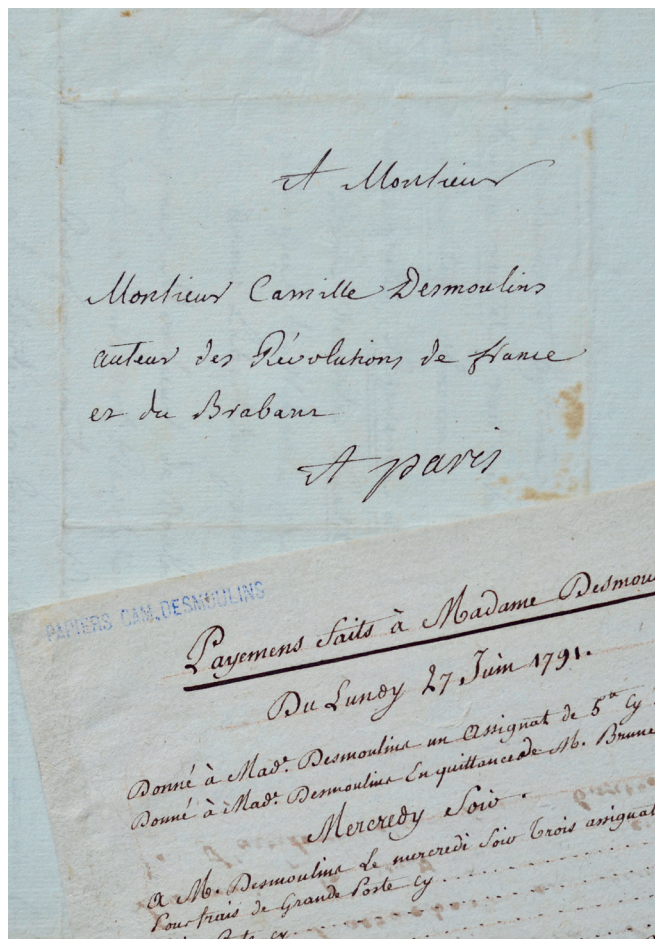 A Monsieur
Monsieur Camille Desmoulins
auteur des Révolutions de france
et du Brabant
A paris
PAPIERS CAM. DESMOULINS
Payemens faits à Madame Desmou
Du Lundy 27 Juin 1791.
Donné à Made. Desmoulins un Assignat de 5# Cy
Donné à Made. Desmoulins En quittance de M. Brune
Mercredy Soir.
A M. Desmoulins Le mercredi Soir trois assignat
Pour frais de Grande Poste Cy
Poste Cy